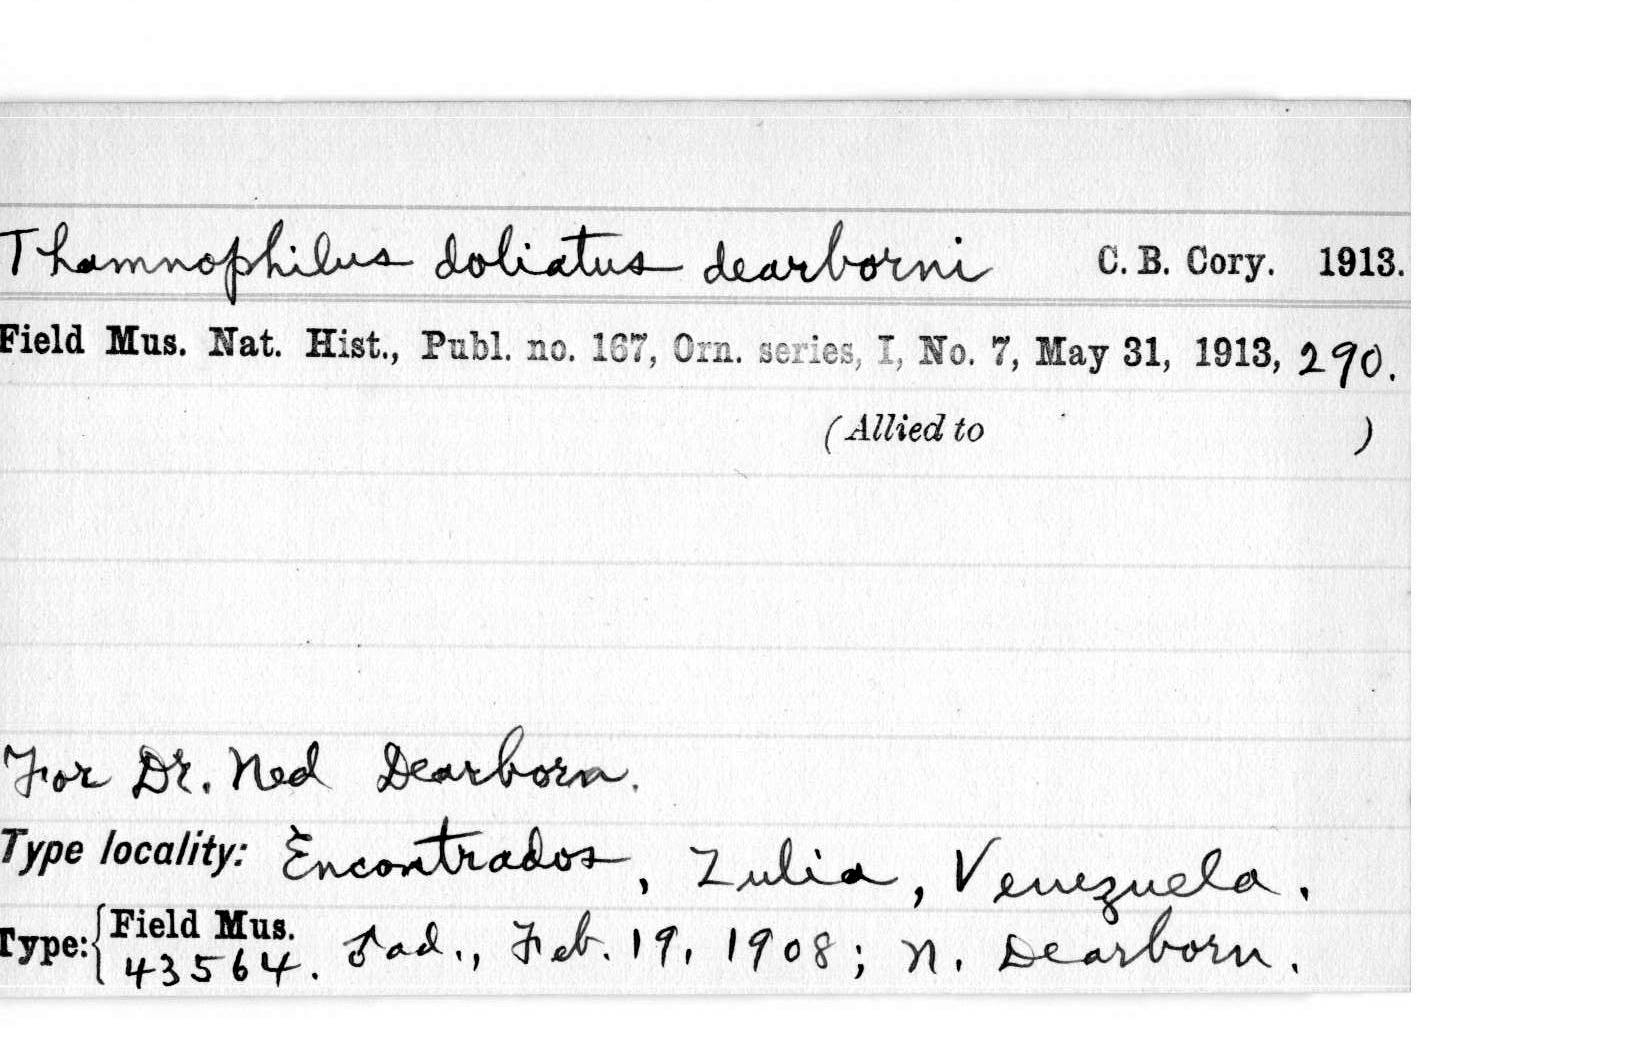 Thamnophilus doliatus dearborni C. B. Cory. 1913.
Field Mus. Nat. Hist., Publ. no. 167, Orn. series, I, No. 7, May 31, 1913, 290.
(Allied to )
For Dr. Ned Dearborn.
Type locality: Encontrados, Zulia, Venezuela.
Type: { Field Mus.
43564. ♂ ad., Feb. 19, 1908; N. Dearborn.